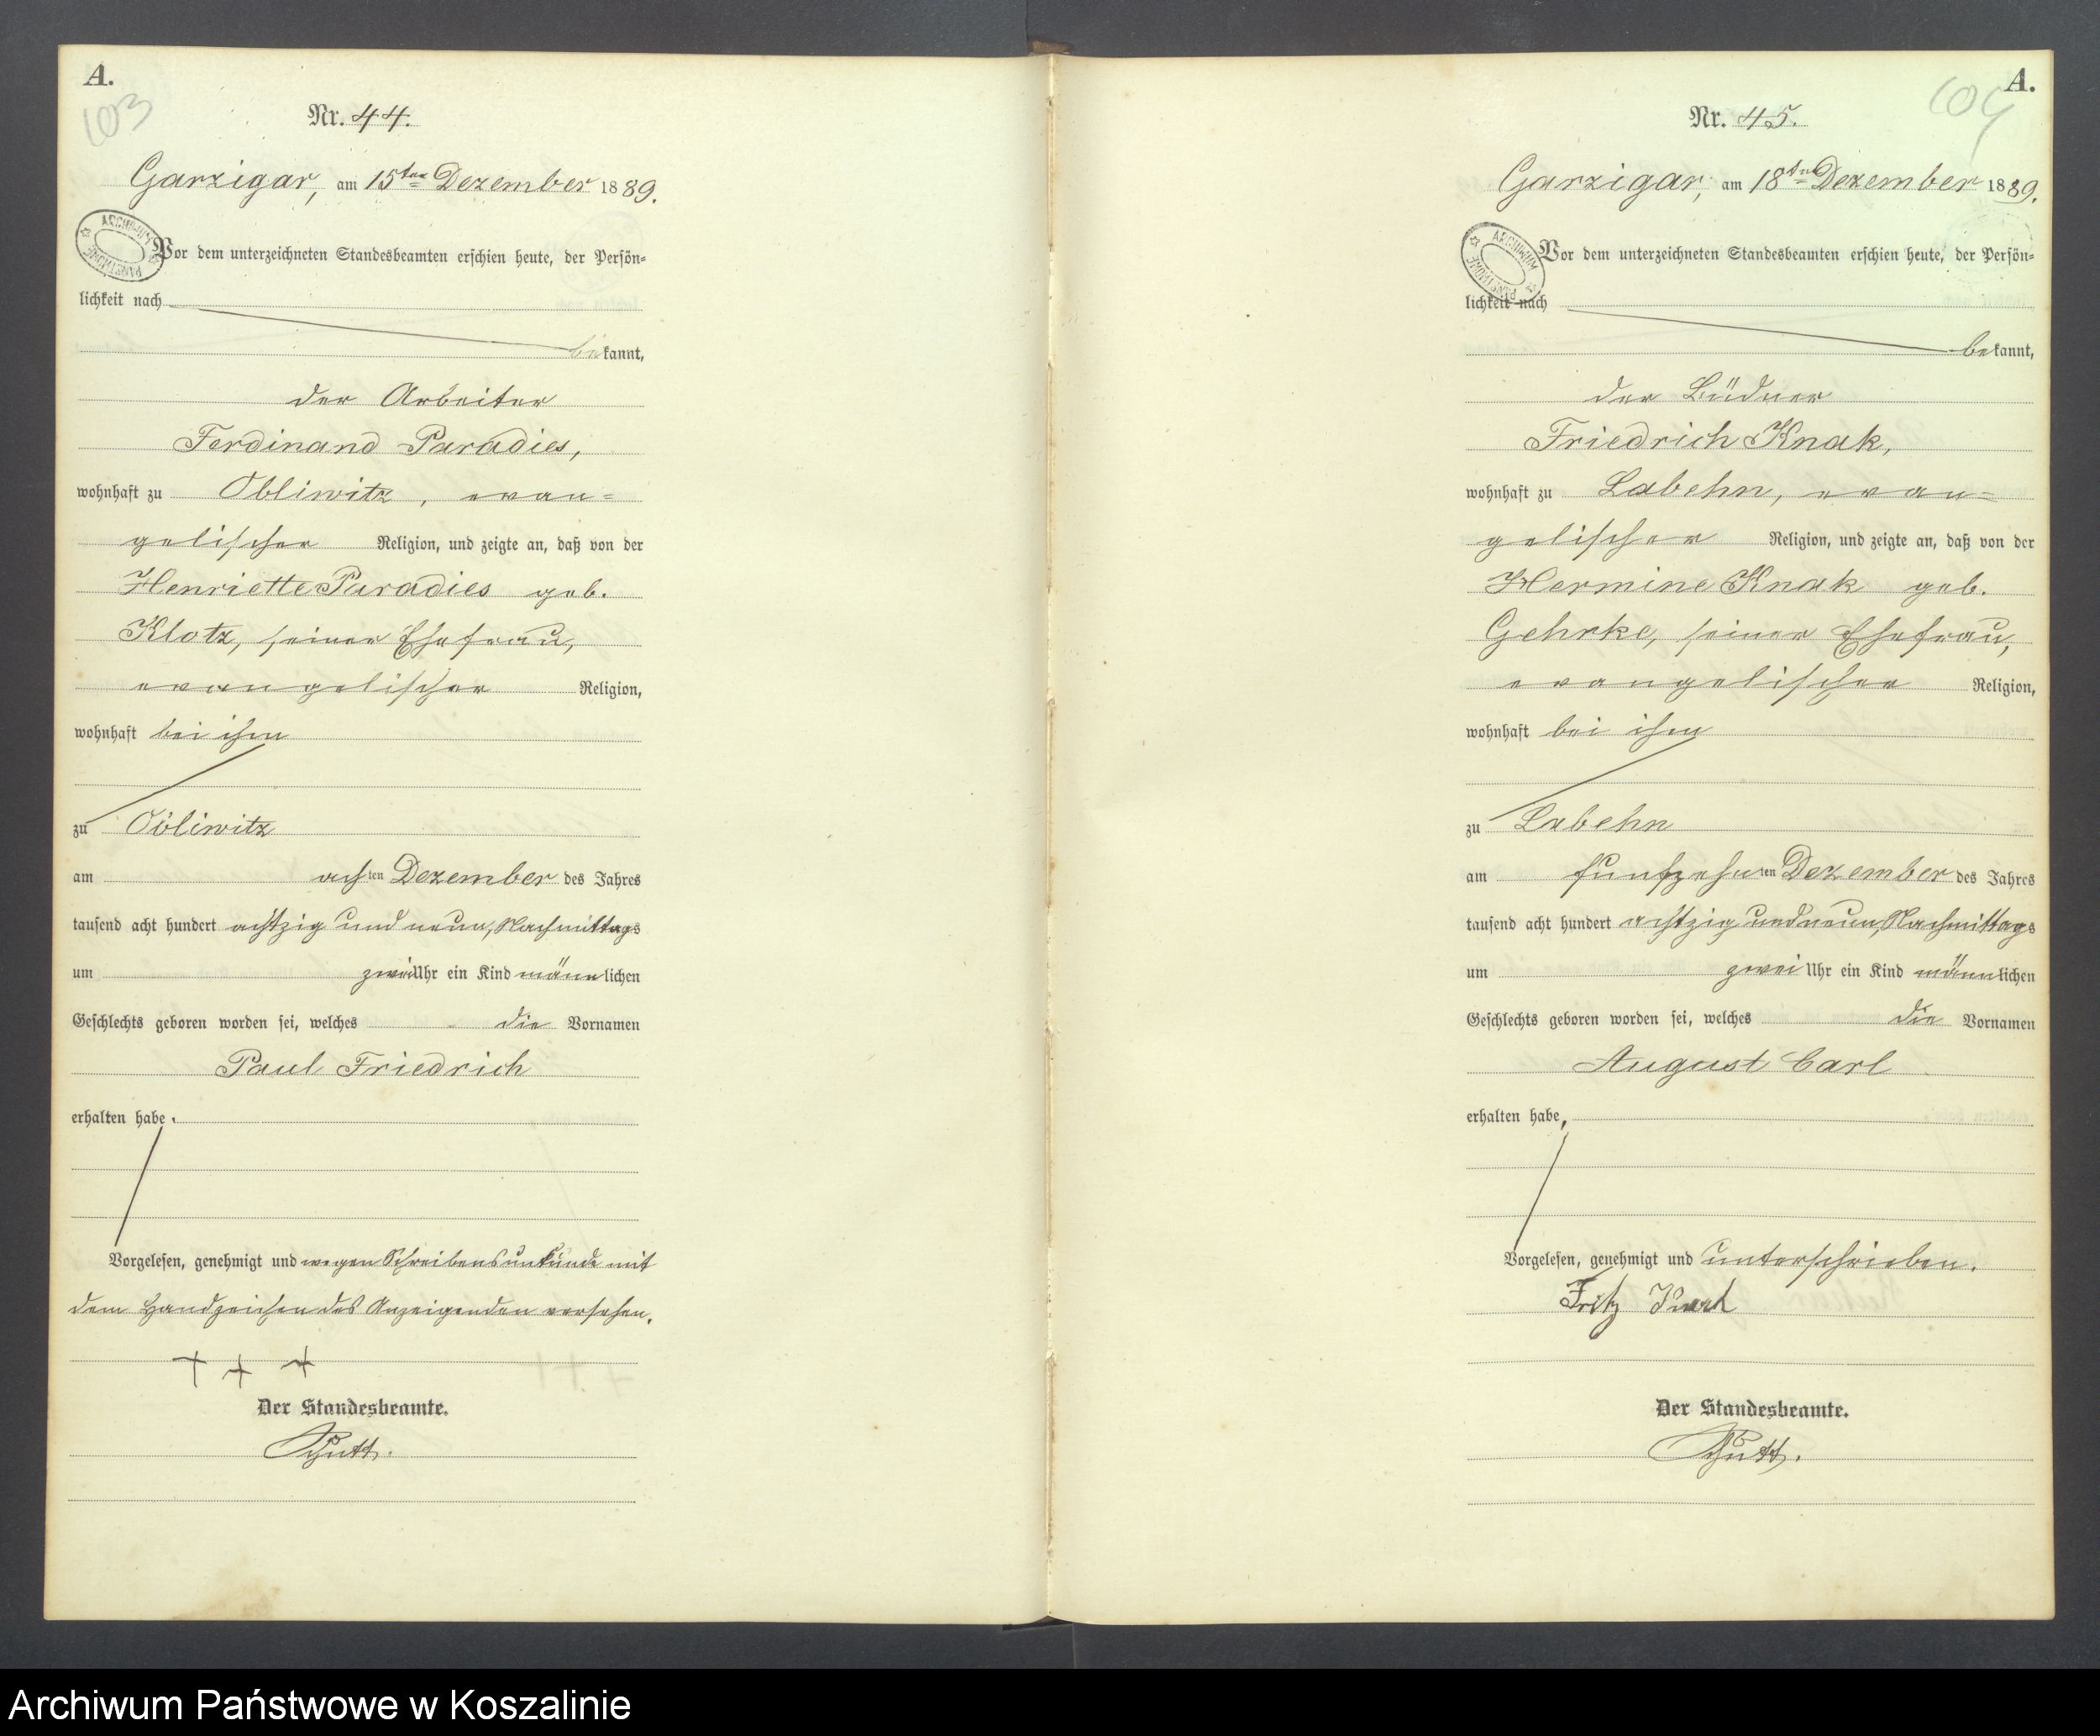 A.
103
Nr. 44.
Garzigar, am 15ten Dezember 1889.
Vor dem unterzeichneten Standesbeamten erschien heute, der Persön=
lichkeit nach
bekannt,
der Arbeiter
Ferdinand Paradies,
wohnhaft zu Obliwitz, evan=
gelischer Religion, und zeigte an, daß von der
Henriette Paradies geb.
Klotz, seiner Ehefrau,
evangelischer Religion,
wohnhaft bei ihm
zu Obliwitz
am achten Dezember des Jahres
tausend acht hundert achtzig und neun, Nachmittags
um zwei Uhr ein Kind männlichen
Geschlechts geboren worden sei, welches die Vornamen
Paul Friedrich
erhalten habe.
Vorgelesen, genehmigt und wegen Schreibensunkunde mit
dem Handzeichen des Anzeigenden versehen.
+ + +
Der Standesbeamte.
A.
104
Nr. 45.
Garzigar, am 18ten Dezember 1889.
ARCHIWUM PAŃSTWOWE
Vor dem unterzeichneten Standesbeamten erschien heute, der Persön=
lichkeit nach
bekannt,
der Büdner
Friedrich Knak,
wohnhaft zu Labehn, evan=
gelischer Religion, und zeigte an, daß von der
Hermine Knak geb.
Gehrke, seiner Ehefrau,
evangelischer Religion,
wohnhaft bei ihm
zu Labehn
am funfzehnten Dezember des Jahres
tausend acht hundert achtzig und neun, Nachmittags
um zwei Uhr ein Kind männlichen
Geschlechts geboren worden sei, welches die Vornamen
August Carl
erhalten habe,
Vorgelesen, genehmigt und unterschrieben.
Fritz Knak
Der Standesbeamte.
Archiwum Państwowe w Koszalinie